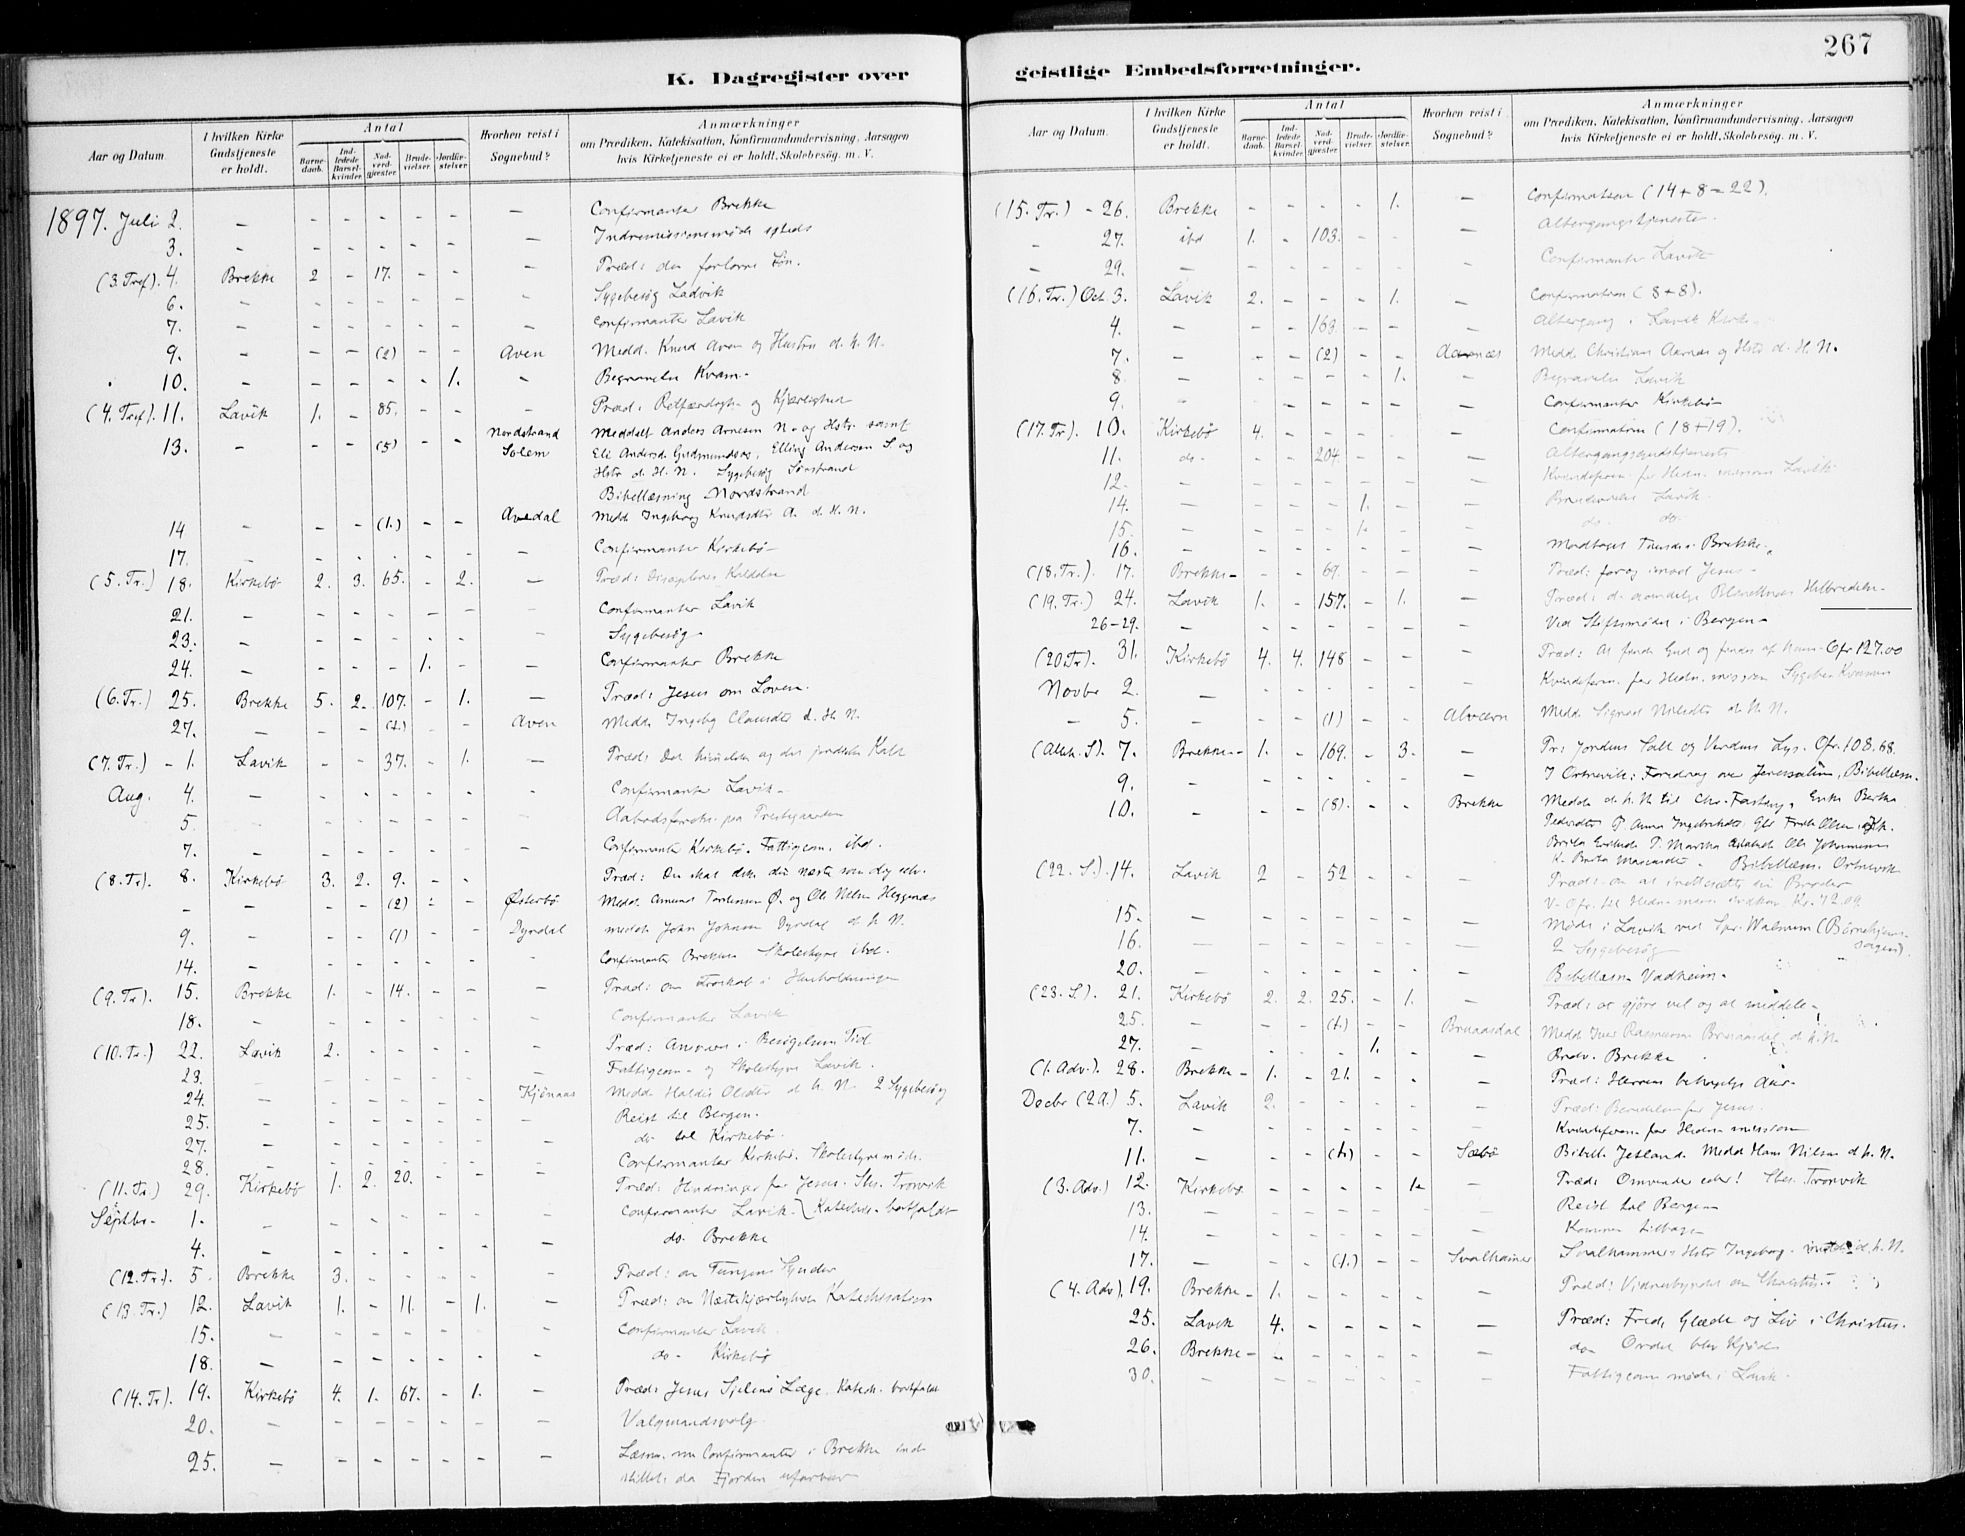 K. Dagregister over
Aar og Datum
I hvilken Kirke Gudstjeneste er holdt.
Antal
Barnedaab.
Indledede Barselkvinder.
Nadverdgjæster.
Brudevielser.
Jordfæstelser.
Hvorhen reist i Sognebud?
Anmærkninger
om Prædiken, Katekisation, Konfirmandundervisning, Aarsagen
hvis Kirketjeneste ei er holdt, Skolebesög. m. V.
1897. Juli 2. – – – – – – – Confirmanter Brekke
3. – – – – – – – Indremissionsmöde
(3. Tref). 4. Brekke 2 – 17. – – – Præd: den forlorne Sön.
6. – – – – – – Sygebesög Ladvik
7. – – – – – – Confirmanter Lavik
9. – – – (2) – – Aven Medd. Knud Aven og Hustru d. h. N.
10. – – – – – 1. – Begravelse Kvam
(4. Tref). 11. Lavik 1. – 85. – – – Præd: Retfærdigh. og Kjærlighed
Nordstrand Meddelt Anders Arnesen N. og Hstr. samt
13. – – – (5) – – Solem Eli Andersd. Gudmundsos, Elling Andersen S. og
Hstr d. H. N. Sygebesög Sörstrand
Bibellæsning Nordstrand
14 – – – (1.) – – Avedal Medd. Ingeborg Knudsdtr A. d. H. N.
17. – – – – – – – Confirmanter Kirkebö
(5. Tr.) 18. Kirkebö 2. 3. 65. – 2. – Præd: Disciplenes Kaldelse
21. – – – – – – Confirmanter Lavik
23. – – – – – – Sygebesög
24. – – – – 1. – – Confirmanter Brekke
(6. Tr.) 25. Brekke 5. 2. 107. – 1. – Præd: Jesus om Loven.
27. – (1.) – Aven Medd. Ingebg Clausdtr d. H. N.
(7. Tr.) – 1. Lavik – – 37. – 1. – Præd: Det himmelske og det jordiske Kald
Aug. 4. – – – – – – – Confirmanter Lavik
5. Aabodsforretn. paa Prestegaarden
7. – – – – – – – Confirmanter Kirkebö. Fattigcom. ibd.
(8. Tr). 8. Kirkebö 3. 2. 9. – – Præd: Du skal elske din næste som dig selv.
– – – – (2) – – Österbö Medd. Amund Torstensen Ö. og Ole Nilsen Heggenæs
9. – – – (1) – – Dyrdal medd. John Johnsen Dyrdal d. h. N.
14. – – Confirmanter Brekke. Skolestyre ibd.
(9. Tr). 15. Brekke 1. – 14. – – – Præd: om Troskab i Husholdningen
18. – – – – – – – Confirmanter Lavik
(10. Tr.) 22. Lavik 2. – – – – – Præd: Ansvaret i Besögelsens Tid
23. – – – – – – – Fattigcom. og Skolestyre Lavik.
24. – – – – – – Kjönaas Medd. Haldis Olsdtr d. h. N. 2 Sygebesög
25. – – – – – – Reist til Bergen.
27. – – – – – – – do til Kirkebö.
28. – – – – – – – Confirmanter Kirkebö. Skolestyremöde.
(11. Tr.) 29. Kirkebö 1. 2. 20. – – – Præd: Hindringer for Jesus. Stes. Trovik
Septbr. 1. – – – – – – – Confirmanter Lavik. Katechis. bortfaldt
4. – – – – – – – do. Brekke
(12. Tr.). 5. Brekke 3. – – – – – Præd: om Tungens Synder
(13. Tr.) 12. Lavik 1. – 11. – 1. – Præd: om Næstekjærlighed. Katechisation
15. – – – – – – – Confirmanter Lavik.
18. – – – – – – – do. Kirkebö
(14. Tr). 19. Kirkebö 4. 1. 67. – 1. – Præd: Jesus Sjelens Læge. Katech. bortfaldt
20. – – – – – – – Valgmandsvalg.
25. – – – – – – – Læsn. m. Confirmanter i Brekke ind-
stillet, da Fjorden ufarbar
geistlige Embedsforretninger.
267
Aar og Datum.
I hvilken Kirke Gudstjeneste er holdt.
Antal
Barnedaab.
Indledede Barselkvinder.
Nadverdgjæster.
Brudevielser.
Jordfæstelser.
Hvorhen reist i Sognebud?
Anmærkninger
om Prædiken, Katekisation, Konfirmandundervisning, Aarsagen
hvis Kirketjeneste ei er holdt, Skolebesög. m. V.
(15. Tr.) – 26. Brekke – – – – 1. – Confirmation (14 + 8 = 22).
– 27. ibd 1. – 103. – – – Altergangstjeneste.
– 29. – – – – – – – Confirmanter Lavik
(16. Tr.) Oct. 3. Lavik 2. – – – 1. – Confirmation (8+8).
4. – – – 163. – – – Altergang i Lavik Kirke
7. – – – (2) – – Aarnæs Medd. Christian Aarnæs og Hstr d. H. N.
8. – – – – – 1. – Begravelse Lavik
9. – – – – – – – Confirmanter Kirkebö
(17. Tr). 10. Kirkebö 4. – – – – – Confirmation (18+19).
11. do. – – 204. – – – Altergangsgudstjeneste
12. – – – – – – – Kvindeforen. for Hedn. mission Lavik
14. – – – – 1. – – Brudevielse Lavik.
15. – – – – 1. – – do. do.
16. – – – – – – – Modtaget Tiende i Brekke.
(18. Tr.). 17. Brekke – – – 69. – – – Præd: for og imod Jesus
(19. Tr.) 24. Lavik 1. – 157. – 1. – Præd: d. aandelige Blindhed Helbredelse
26–29. – – – – – – – Ved Stiftsmödet i Bergen
(20 Tr). 31. Kirkebö 4. 4. 148 – – – Præd: At finde Gud og findes af ham. Ofr 127.00
Novbr 2. – – – – – – – Kvindeforen. for Hedn. mission Sygebes. Kvamm
– 5. – – – (1) – – Alværn Medd. Sigrid Nilsdtr d. h. N.
(Alleh. S). 7. Brekke – 1. – 169. – 3. – Pr: Jordens Salt og Verdens Lys. Ofr. 108.68.
9. – – – – – – – I Ortnevik: Foredrag over Jerusalem, Bibellæsn.
10. – – – (8). – – Brekke Medd. d. h. N. til Chr. Fastøy, Enke Bertha
(22. S.). 14. Lavik 2 – 52 – – – Bibellæsn. Ortnevik
Præd: om at irettesætte sin Broder
V. Ofr. til Hedn. miss. indkom Kr. 72.09.
15. – – – – – – – Möde i Lavik ved Spr. Walnum (Börnehjemssagen).
16. – – – – – – – 2 Sygebesög
20. – – – – – – – Bibellæsn. Vadheim.
(23. S.). 21. Kirkebö 2. 2. 25. – 1. – Præd: at gjöre vel og at meddele
25. – – – (1.) – – Bruaasdal Medd. Iver Rasmussen Bruaasdal d. h. N.
27. – – – – 1. – – Brdv. Brekke
(1. Adv.). 28. Brekke – 1. – 21. – – – Præd: Herrens behagelige Aar.
Decbr (2 A.) 5. Lavik 2. – – – – – Præd: Beredelsen for Jesus.
7. – – – – – – – Kvindeforen. for Hedn. mission
11. – – – (1.) – – Sæbö Bibell. Jetland. Medd. Hans Nilsen d. h. N.
(3. Adv.) 12. Kirkebö. – – – – 1. – Præd: Omvender eder! Stes. Trovik
13. – – – – – – – Reist til Bergen
14. – – – – – – – Kommen tilbage
17. – – – (1.) – – Svalhamer Svalhammer Hstr Ingeborg d. h. N.
(4. Adv). 19. Brekke – 1. – – – – – Præd: Vidnesbyrdet om Christus
25. Lavik 4. – – – – – Præd: Fred, Glæde og Liv i Christus.
26. Brekke – – – – – – – do Ordet blev Kjöd
30. – – – – – – – Fattigcom. möde i Lavik.